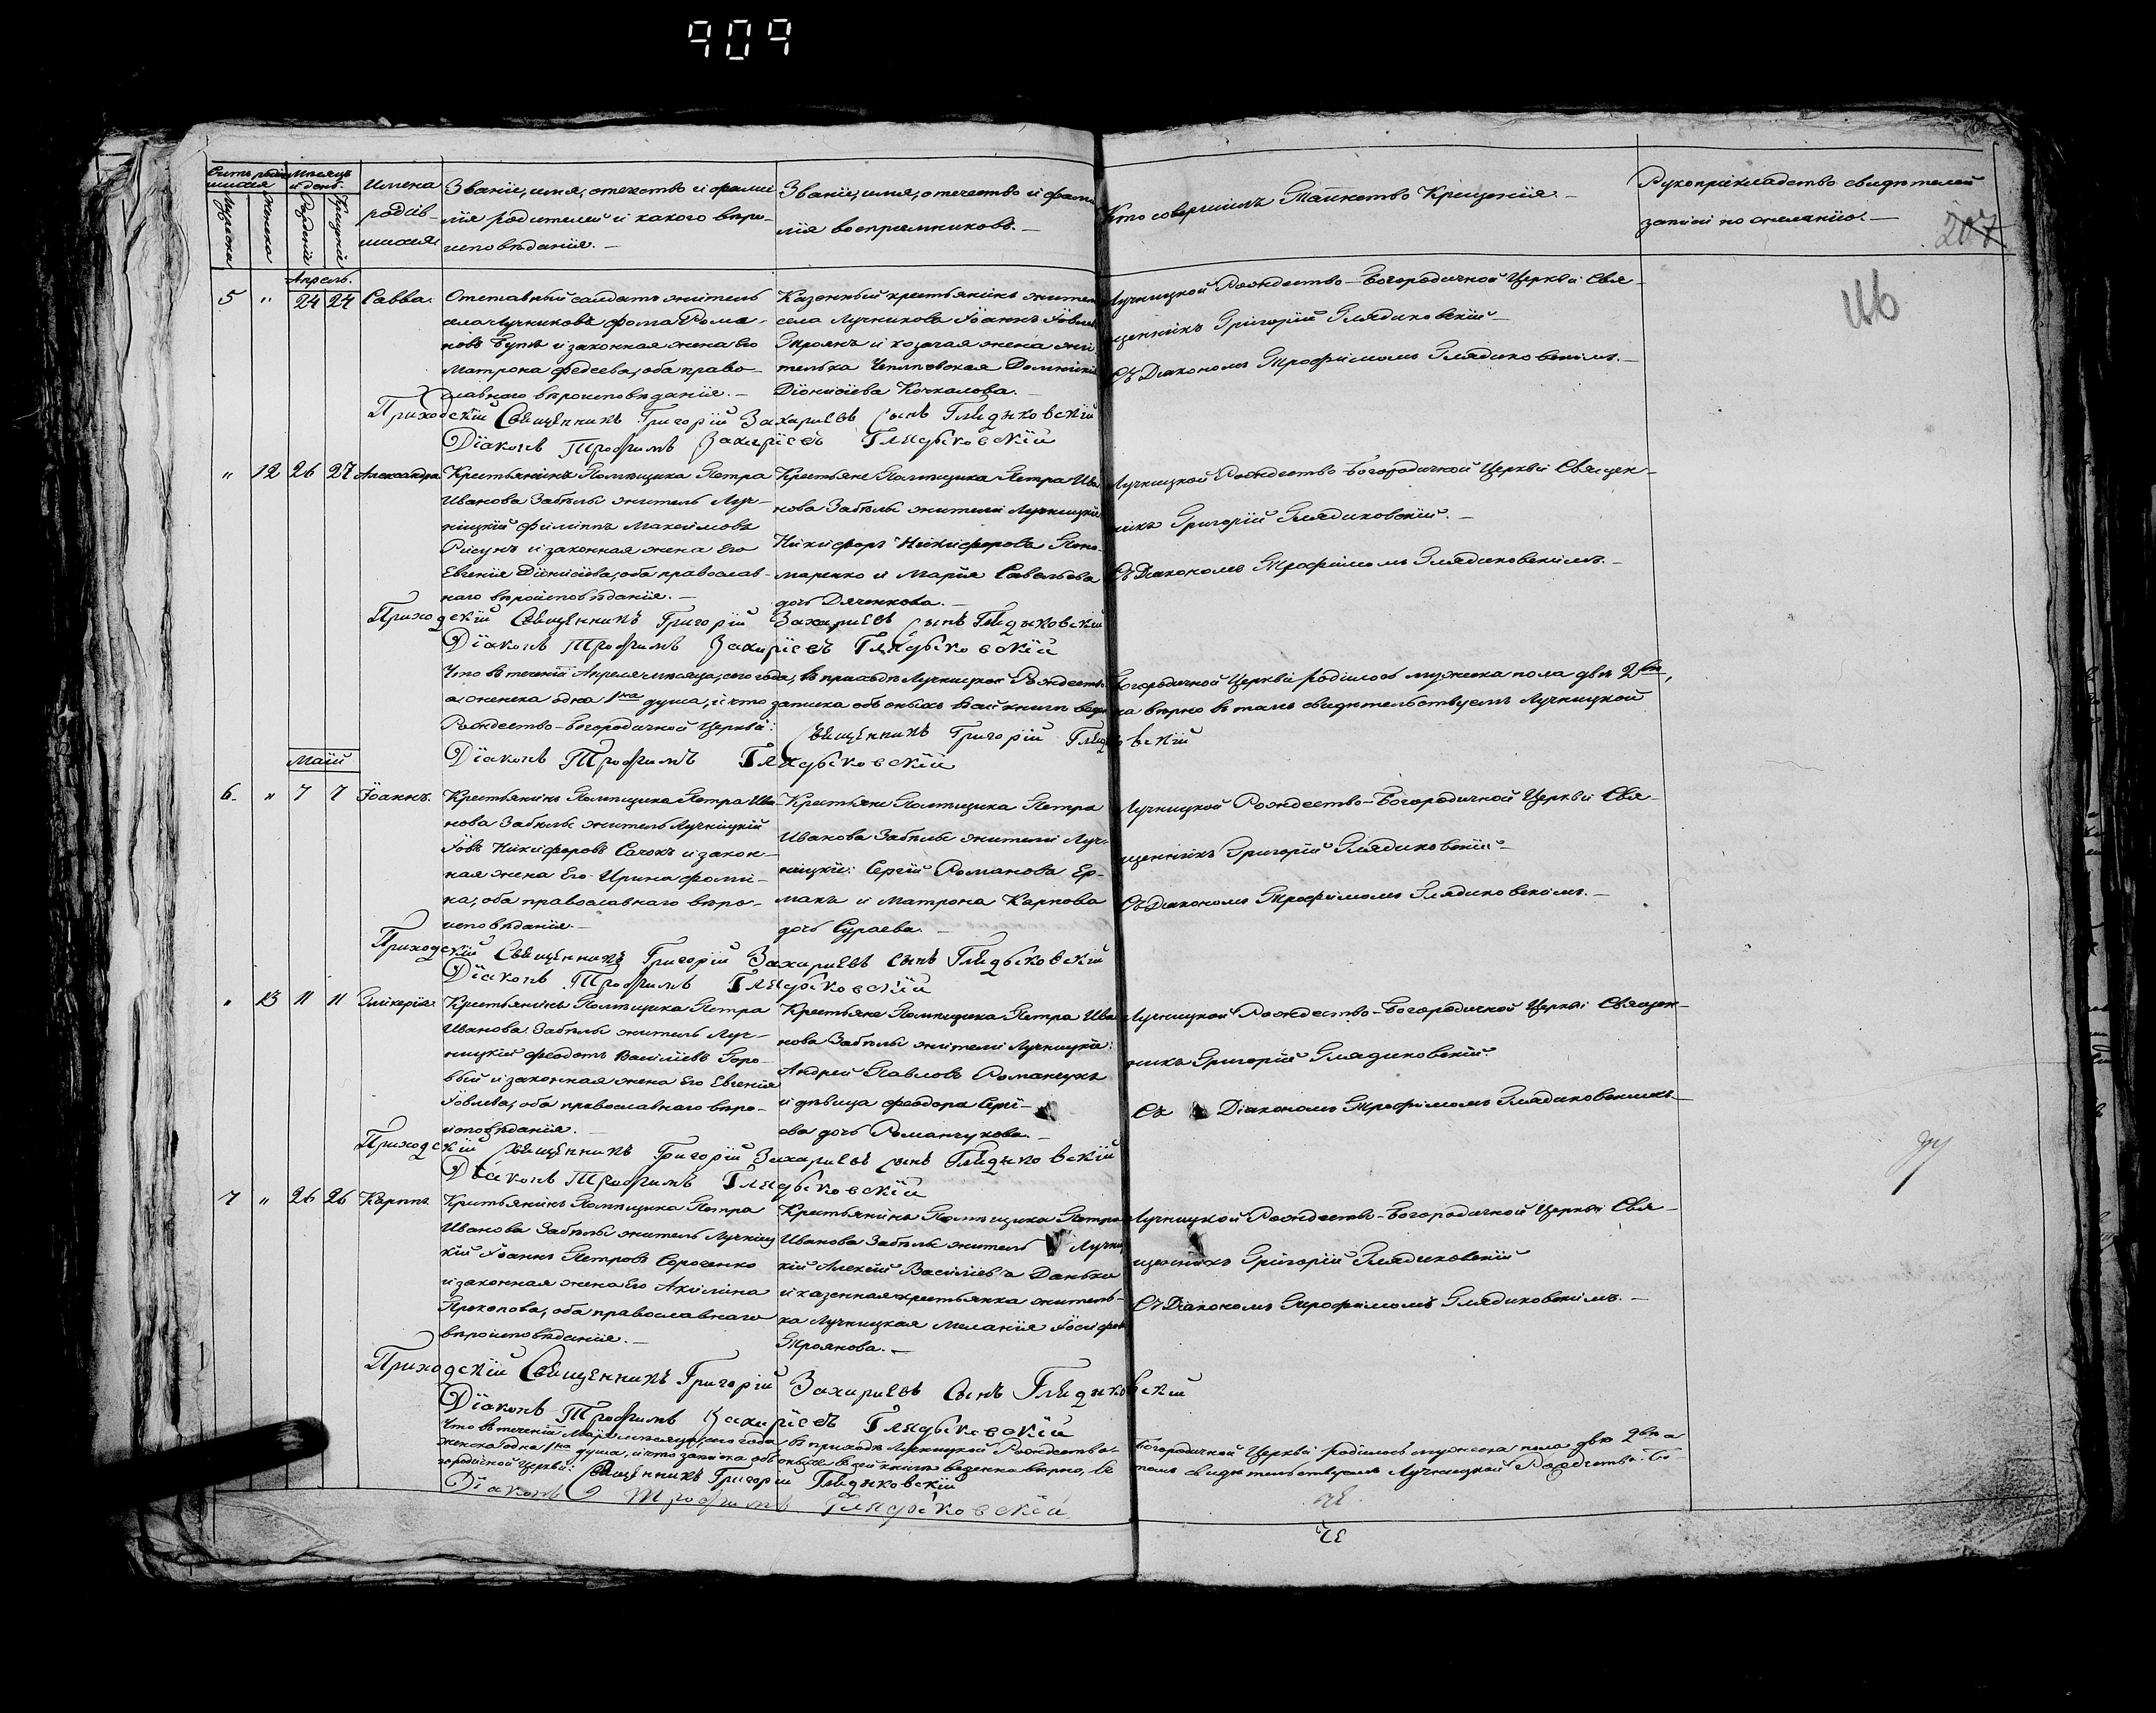 909
Счетъ родив- Мѣсяцъ
шихся и день.
Мужеска
Женска
Рожденій
Крещеній
Имена
родив-
шихся
Званіе, имя, отечество и фами-
лія родителей и какого вѣро-
исповѣданія. —
Званіе, имя, отечество и фами
лія воспріемниковъ. —
Кто совершилъ Таинство Крещенія. —
Рукоприкладство свидѣтелей
записи по желанію. —
207
Апрель.
5 " 24 24 Савва.
Отставный салдатъ житель
села Лучниковъ Фома Рома-
новъ Бутъ и законная жена Его
Матрона Федеева, оба право-
славнаго вѣроисповѣданія. —
Казенный крестьянинъ жител
села Лучникова Іоаннъ Іовлев
Троянъ и козачая жена жи
телька
Діонисіева Кочкалова. —
Лучницкой Рождество-Богородичной Церкви Свя-
щенникъ Григорій Глядиковскій —
Съ Діакономъ Трофимомъ Глядиковскимъ. —
Приходскій Священникъ Григорій Захаріевъ сынъ Глядыковскій
Діаконъ Трофимъ Захаріевъ Глядыковскій
" 12 26 27 Александра
Крестьянинъ Помѣщика Петра
Иванова Забѣлы житель Луч-
ницкій Филиппъ Максимовъ
Рисунъ и законная жена Его
Евгенія Діонисіева, оба православ-
наго вѣроисповѣданія. —
Крестьяне Помѣщика Петра Ива
нова Забѣлы жители Лучницкіе
Никифоръ Никифорова Поно-
маренко и Марія Савельева
дочь Дяченкова. —
Лучницкой Рождество-Богородичной Церкви Священ-
никъ Григорій Глядиковскій. —
Съ Діакономъ Трофимомъ Глядиковскимъ. —
Приходскій Священникъ Григорій Захаріевъ сынъ Глядыковскій
Діаконъ Трофимъ Захаріевъ Глядыковскій
Что въ теченіи Апреля мѣсяца, сего года, въ приходѣ Лучницкой Рождество- Богородичной Церкви родилось мужеска пола двѣ 2вѣ,
а женска одна 1на душа, и что записка объ оныхъ въ сей книгѣ веде на вѣрно въ томъ свидѣтельствуемъ Лучницкой
Рождество-Богородичной Церкви: Священникъ Григорій Глядыковскій
Діаконъ Трофимъ Глядыковскій
Маій
6. " 7 7 Іоаннъ.
Крестьянинъ Помѣщика Петра Ива-
нова Забѣлы житель Лучницкій
Іовъ Никифоровъ Сачокъ и закон-
ная жена Его Ирина Фоми-
на, оба православнаго вѣро-
исповѣданія. —
Крестьяне Помѣщика Петра
Иванова Забѣлы жители Луч-
ницкіе: Сергій Романова Ер-
макъ и Матрона Карпова
дочь Сураева. —
Лучницкой Рождество-Богородичной Церкви Свя-
щенникъ Григорій Глядиковскій —
Съ Діакономъ Трофимомъ Глядиковскимъ. —
Приходскій Священникъ Григорій Захаріевъ сынъ Глядыковскій
Діаконъ Трофимъ Глядыковскій
" 13 11 11 Гликерія.
Крестьянинъ Помѣщика Петра
Иванова Забѣлы житель Луч-
ницкій Феодотъ Василіевъ Горо-
вый и законная жена Его Евгенія
Іовлева, оба православнаго вѣро-
исповѣданія. —
Крестьяне Помѣщика Петра Ива
нова Забѣлы жители Лучницкіе:
Андрей Павловъ Романчукъ
и дѣвица Феодора Сергі-
ева дочь Романчукова. —
Лучницкой Рождество-Богородичной Церкви Священ-
никъ Григорій Глядиковскій.
Съ Діакономъ Трофимомъ Глядиковскимъ —
Приходскій Священникъ Григорій Захаріевъ сынъ Глядыковскій
Діаконъ Трофимъ Глядыковскій
7 " 26 26 Карпъ.
Крестьянинъ Помѣщика Петра
Иванова Забѣлы житель Лучниц
кій Іоаннъ Петровъ Сороченко
и законная жена Его Акилина
Прокопова, оба православнаго
вѣроисповѣданія. —
Крестьянинъ Помѣщика Петра
Иванова Забѣлы житель Лучниц
кій Алексій Василіевъ Данька
и казенная крестьянка житель-
ка Лучницкая Меланія Іосифова
Троянова. —
Лучницкой Рождество-Богородичной Церкви Свя-
щенникъ Григорій Глядиковскій
Съ Діакономъ Трофимомъ Глядиковскимъ. —
Приходскій Священникъ Григорій Захаріевъ сынъ Глядыковскій
Діаконъ Трофимъ Захаріевъ Глядыковскій
Что въ теченіи Маія мѣсяца, сего года, въ приходѣ Лучницкой Рождество- Богородичной Церкви родилось мужеска пола двѣ 2вѣ а
женска одна 1на душа, и что записка объ оныхъ въ сей книгѣ ведена вѣрно, въ томъ свидѣтельствуемъ Лучницкой Рождество-Бо-
городичной Церкви: Священникъ Григорій Глядыковскій
Діаконъ Трофимъ Глядыковскій